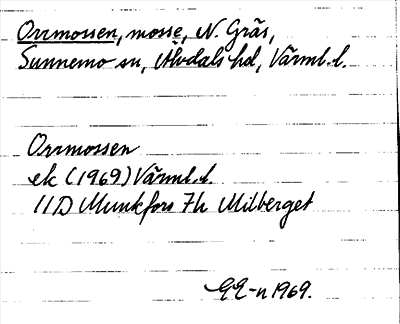 Orrmossen, mosse, N. Gräs,
Sunnemo sn, Älvdals hd, Värml. l.
Orrmossen
ek (1969) Värml. l.
11D Munkfors 7h Milberget
GE-n 1969.